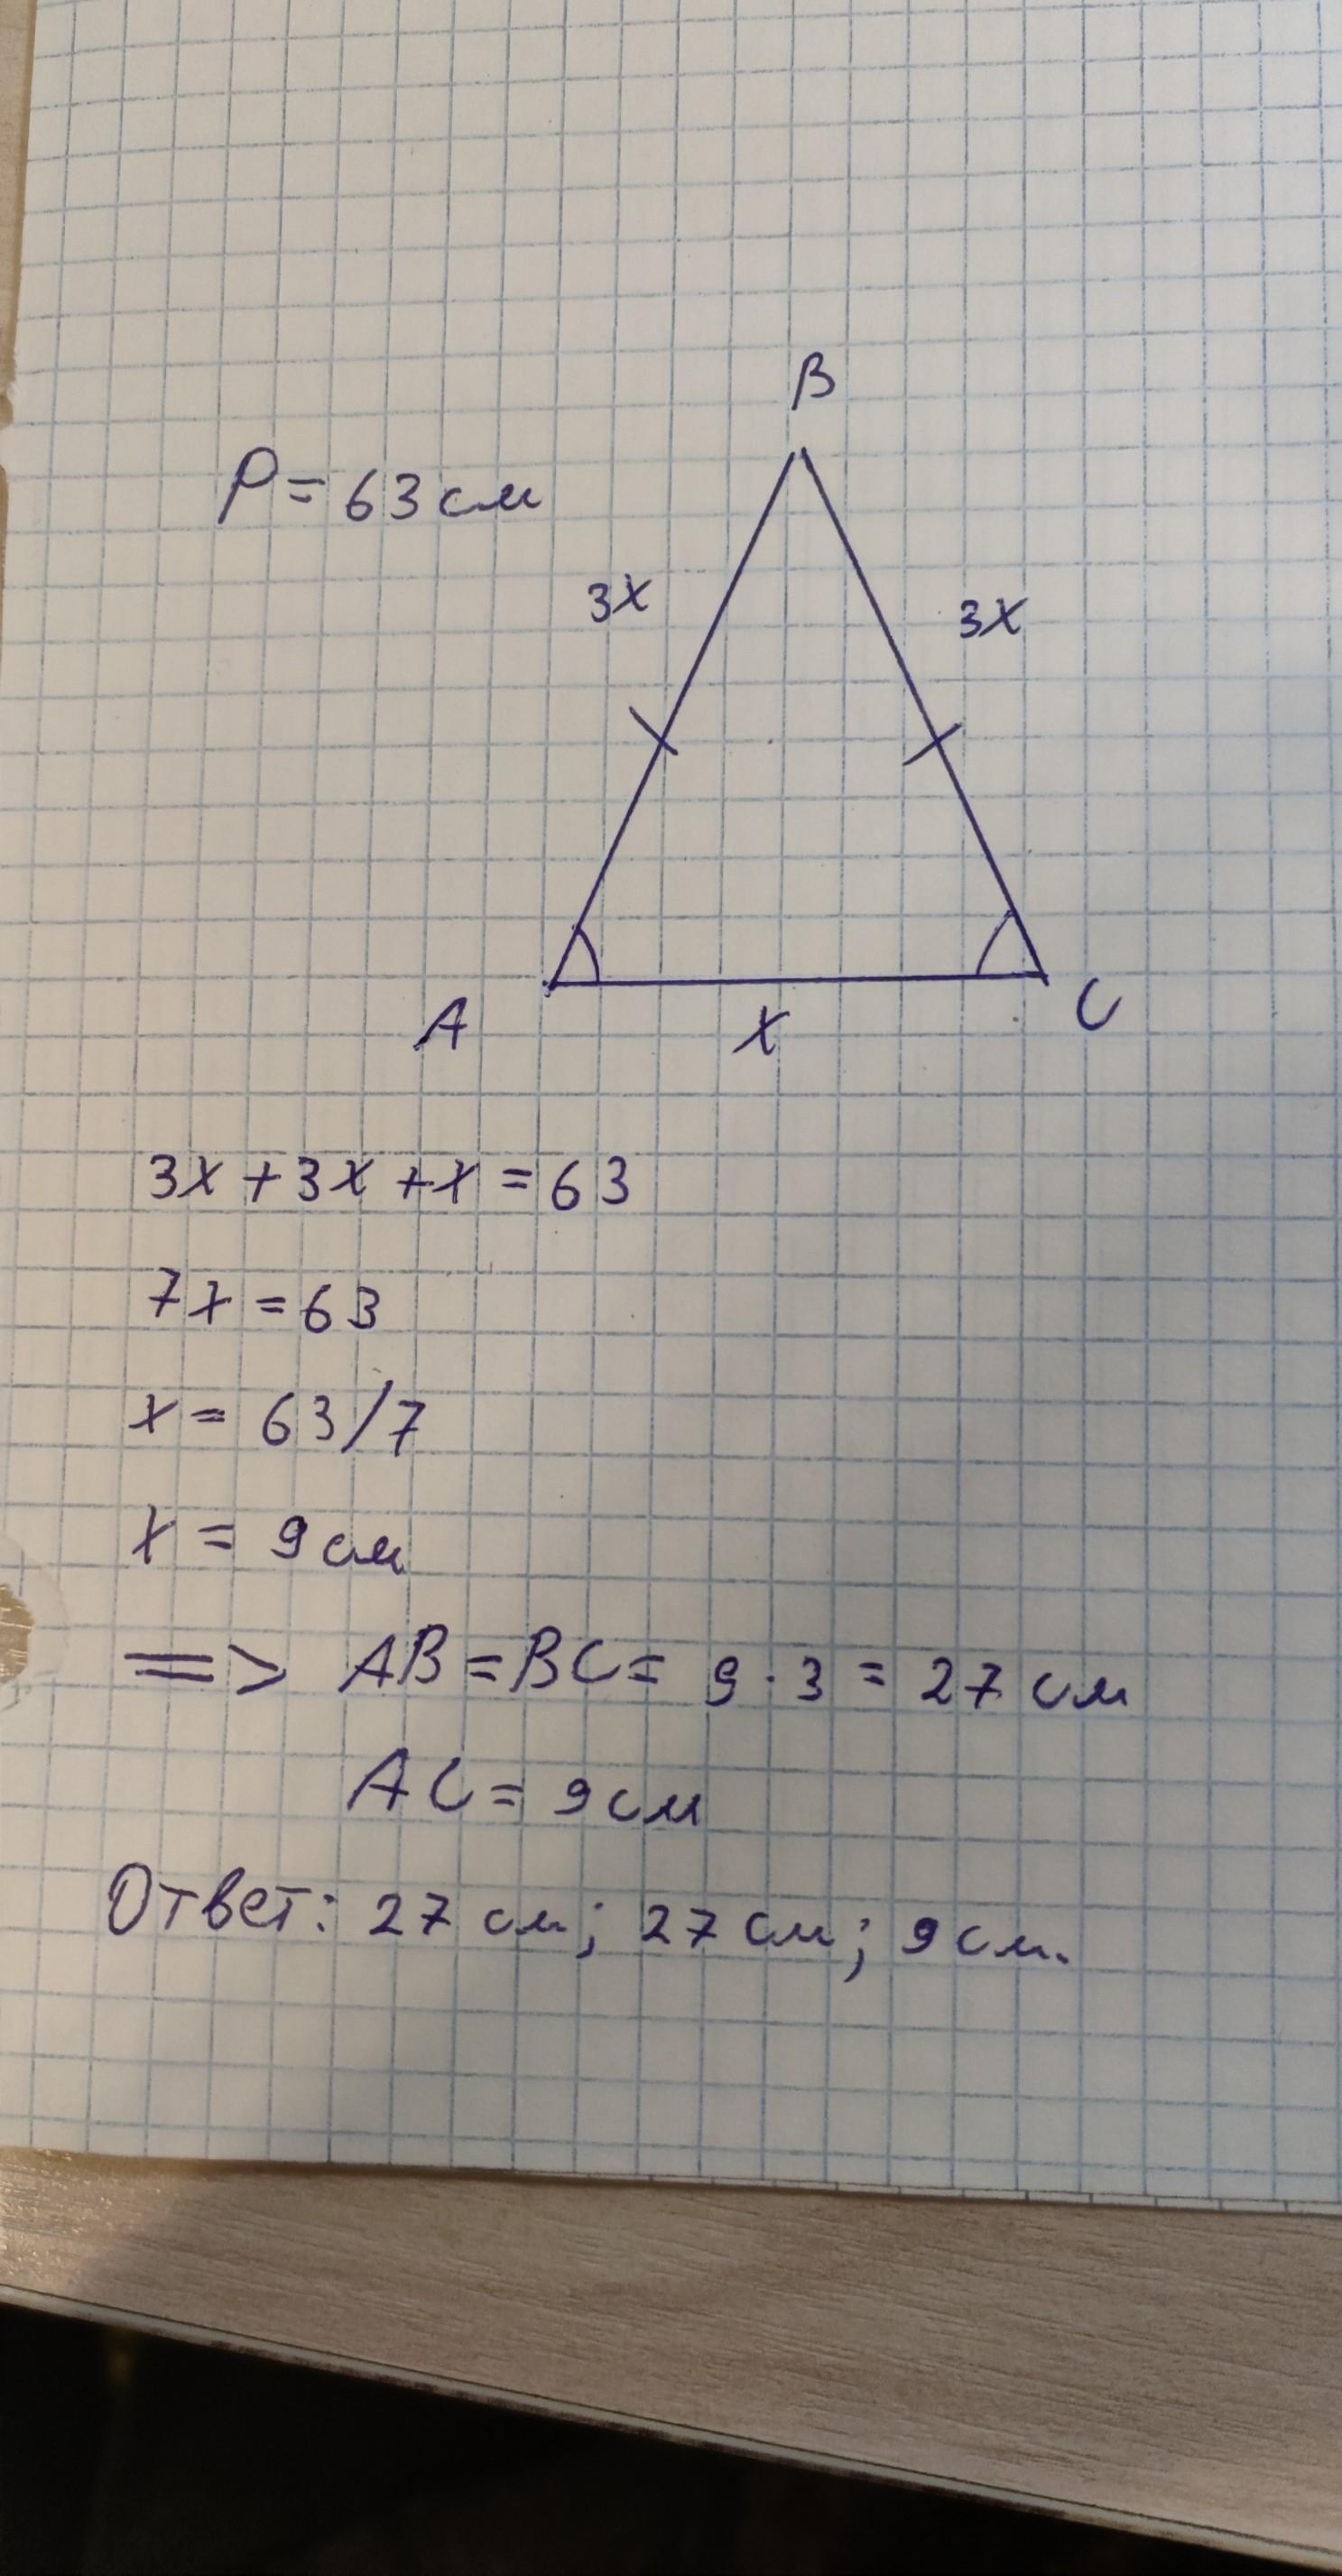 B
P = 63 см
3x
3x
A
x
C
3x + 3x + x = 63
7x = 63
x = 63/7
x = 9 см
=> AB = BC = 9 · 3 = 27 см
AC = 9 см
Ответ: 27 см; 27 см; 9 см.